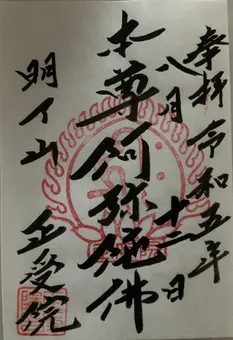 奉拝 令和五年
八月十二日
本尊阿弥陀佛
明了山
正受院